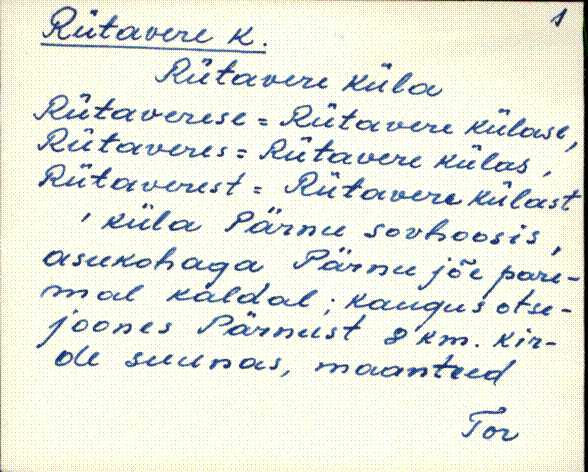 1
Rütavere k.
Rütavere küla
Rütaverese = Rütavere külase,
Rütaveres = Rütavere külas,
Rütaverest = Rütavere külast
, küla Pärnu sovhoosis,
asukohaga Pärnu jõe pare-
mal kaldal; kaugus otse-
joones Pärnust 8 km. kir-
de suunas, maanteed
Tor